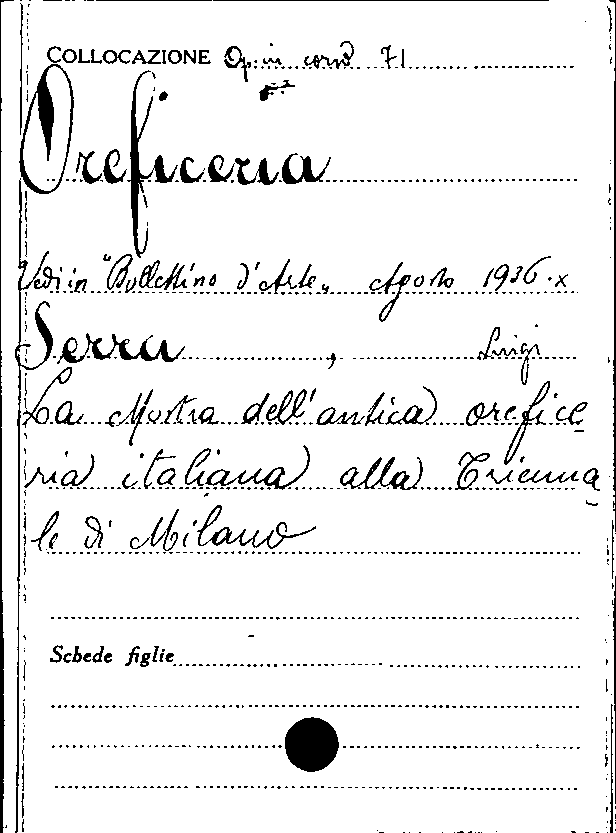 COLLOCAZIONE Op. in corso 71
Oreficeria
Vedi in "Bollettino d'Arte„ Agosto 1936.x
Serra, Luigi
La Mostra dell'antica orefice-
ria italiana alla Trienna-
le di Milano
Schede figlie